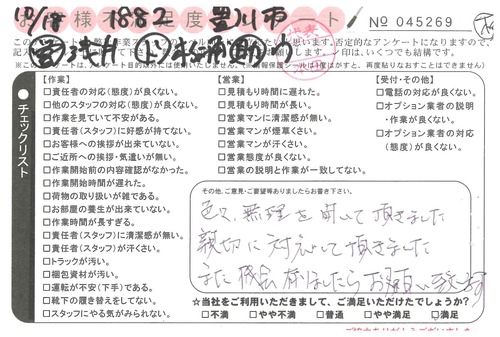 10/18 1882 豊川市
お客様不満足度アンケート
No 045269
記入
【作業】
□責任者の対応(態度)が良くない。
□他のスタッフの対応(態度)が良くない。
□作業を見ていて不安がある。
□責任者(スタッフ)に好感が持てない。
□お客様への挨拶が出来ていない。
□ご近所への挨拶・気遣いが無い。
□作業開始前の内容確認がなかった。
□作業開始時間が遅れた。
□荷物の取り扱いが雑である。
□お部屋の養生が出来ていない。
□作業時間が長すぎる。
□責任者(スタッフ)に清潔感が無い。
□責任者(スタッフ)が汗くさい。
□トラックが汚い。
□梱包資材が汚い。
□運転が不安(下手)である。
□靴下の履き替えをしてない。
□スタッフにやる気がみられない。
【営業】
□見積もりが時間に遅れた。
□見積もり時間が長い。
□営業マンに清潔感が無い。
□営業マンが煙草くさい。
□営業マンが汗くさい。
□営業態度が良くない。
□営業の説明と作業が一致してない。
【受付・その他】
□電話の対応が良くない。
□オプション業者の説明
・作業が良くない。
□オプション業者の対応
(態度)が良くない。
チェックリスト
その他、ご意見・ご要望等ありましたらお書き下さい。
色々、無理を聞いて頂きました
親切に対応して頂きました
また機会有りましたらお願い致します
☆当社をご利用いただきまして、ご満足いただけたでしょうか?
□不満 □やや不満 □普通 □やや満足 □満足
ご協力ありがとうございました